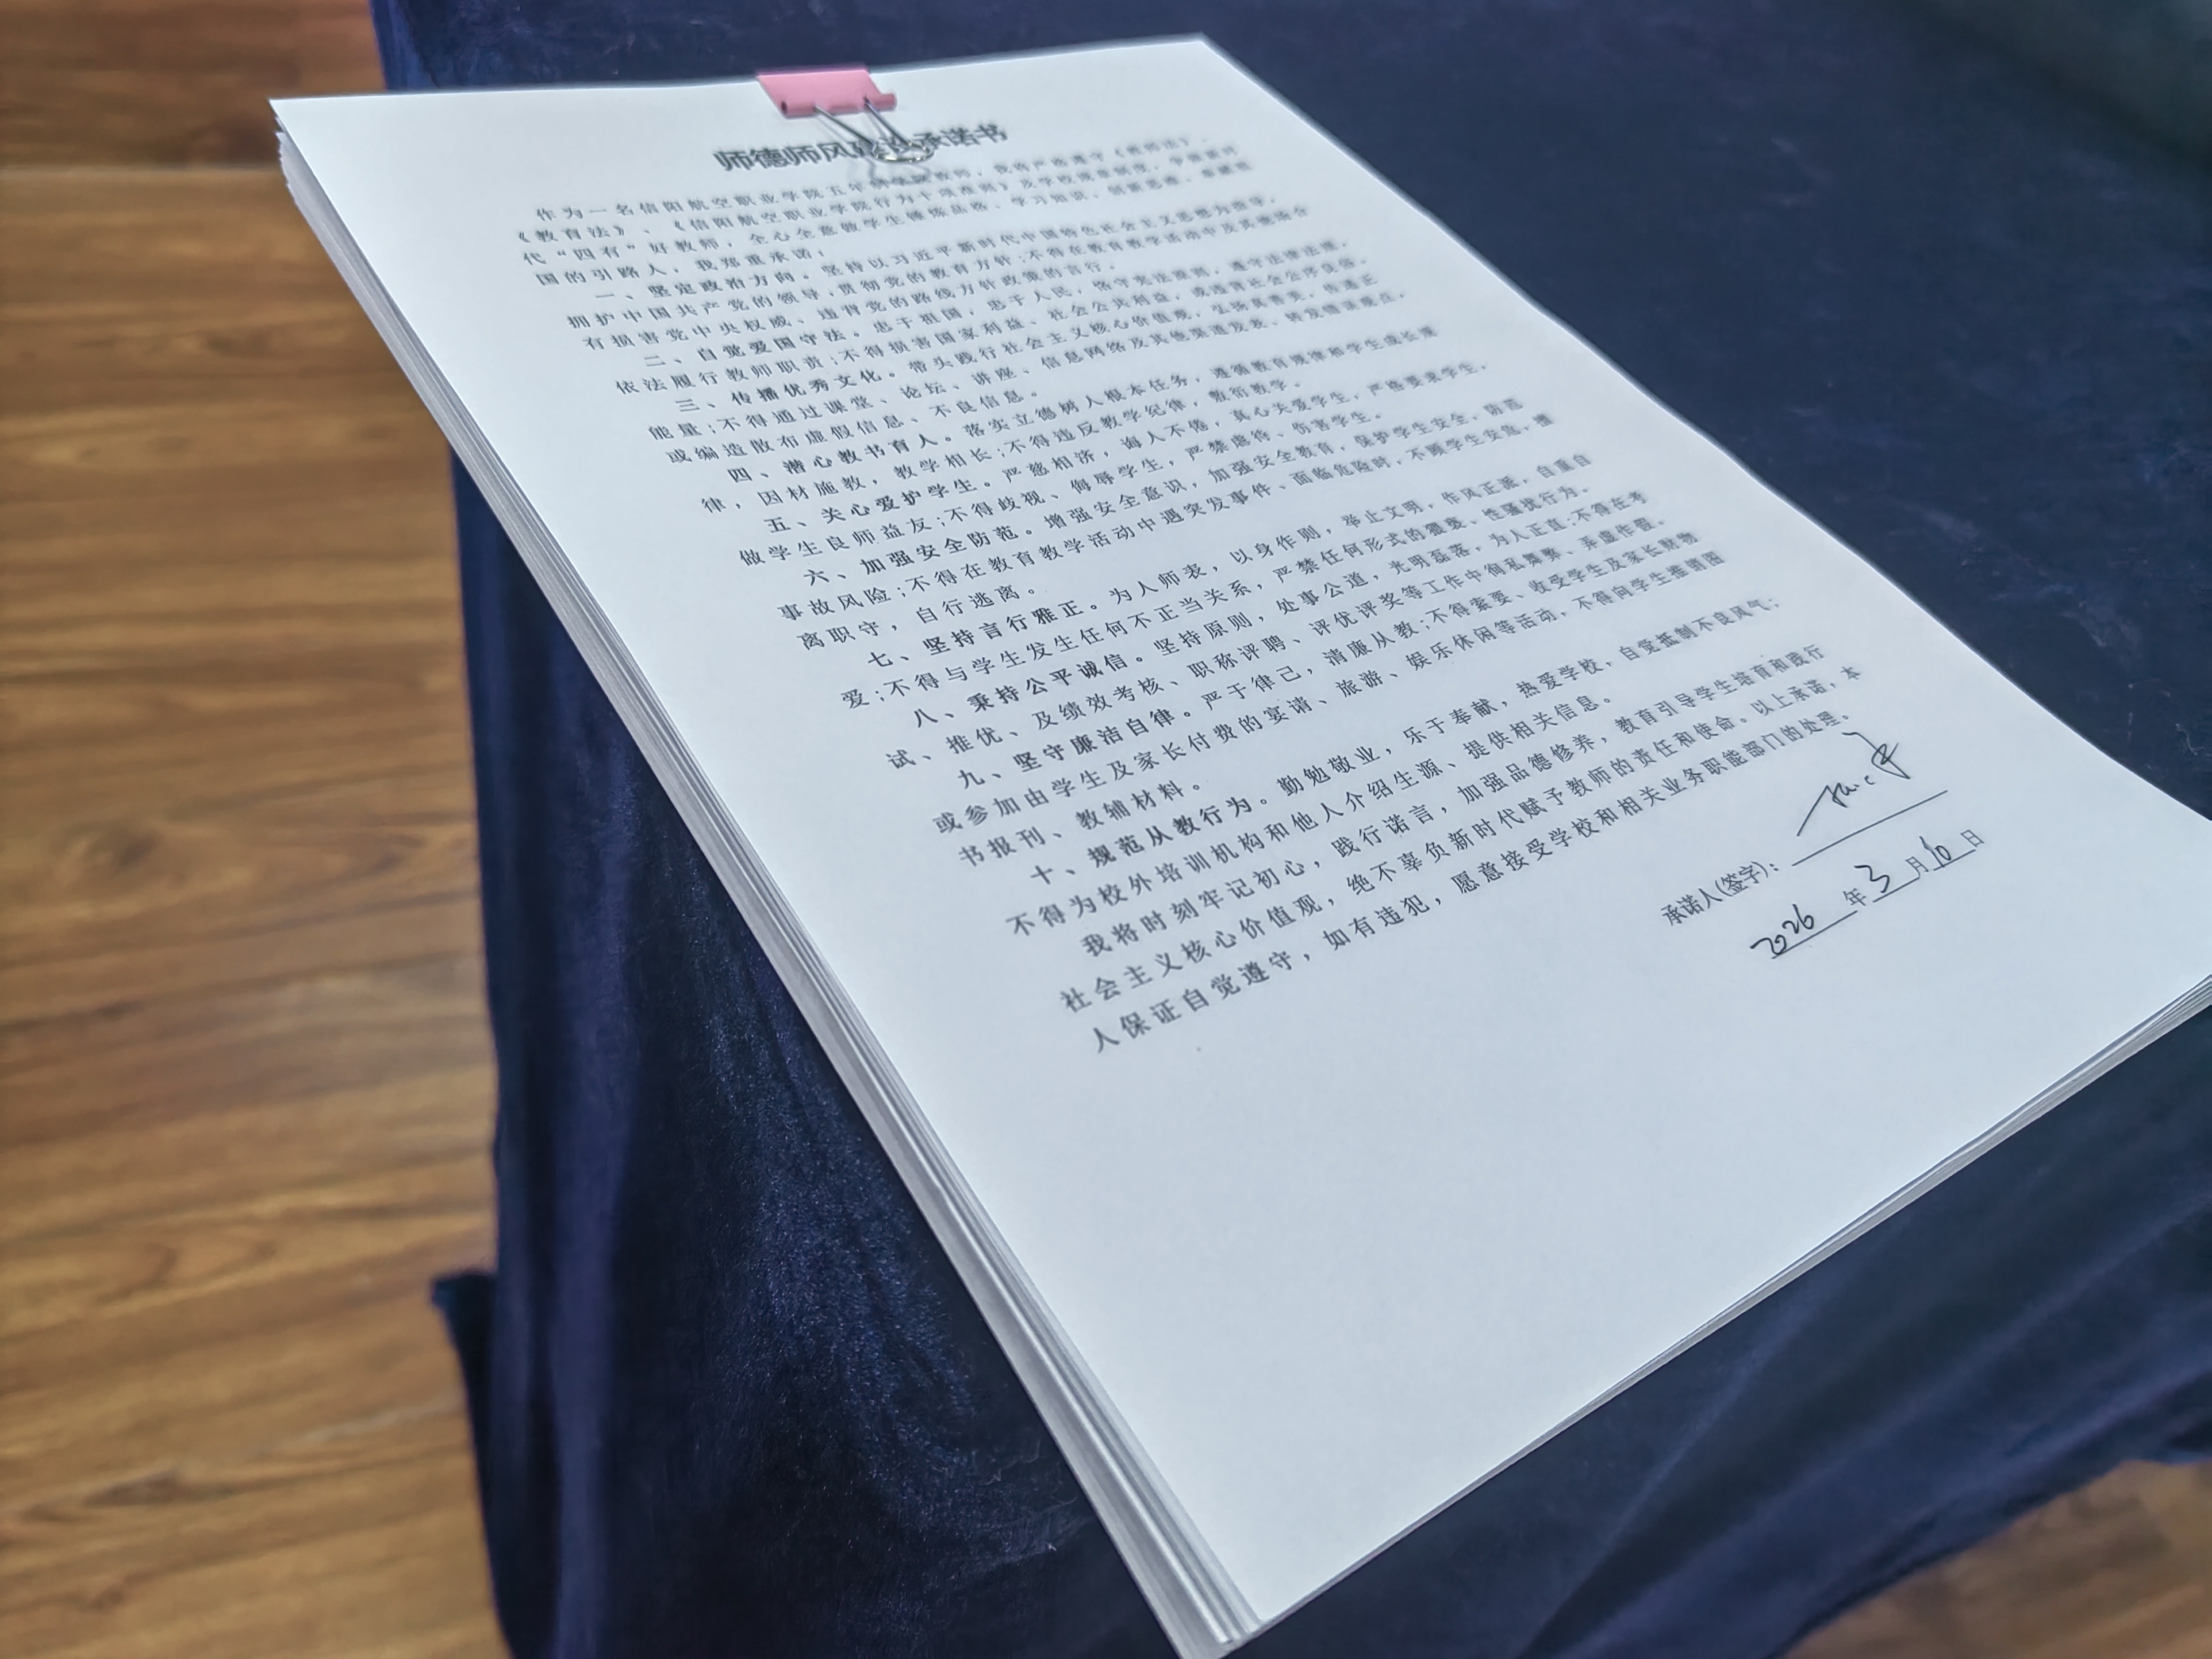 师德师风建设承诺书
作为一名信阳航空职业学院五年制学段教师，我将严格遵守《教师法》、
《教育法》、《信阳航空职业学院行为十项准则》及学校规章制度，争做新时
代“四有”好教师，全心全意做学生锤炼品格、学习知识、创新思维、奉献祖
国的引路人，我郑重承诺：
一、坚定政治方向。坚持以习近平新时代中国特色社会主义思想为指导，
拥护中国共产党的领导，贯彻党的教育方针；不得在教育教学活动中及其他场合
有损害党中央权威、违背党的路线方针政策的言行。
二、自觉爱国守法。忠于祖国，忠于人民，恪守宪法原则，遵守法律法规，
依法履行教师职责；不得损害国家利益、社会公共利益，或违背社会公序良俗。
三、传播优秀文化。带头践行社会主义核心价值观，弘扬真善美，传递正
能量；不得通过课堂、论坛、讲座、信息网络及其他渠道发表、转发错误观点，
或编造散布虚假信息、不良信息。
四、潜心教书育人。落实立德树人根本任务，遵循教育规律和学生成长规
律，因材施教，教学相长；不得违反教学纪律，敷衍教学。
五、关心爱护学生。严慈相济，诲人不倦，真心关爱学生，严格要求学生，
做学生良师益友；不得歧视、侮辱学生，严禁虐待、伤害学生。
六、加强安全防范。增强安全意识，加强安全教育，保护学生安全，防范
事故风险；不得在教育教学活动中遇突发事件、面临危险时，不顾学生安危，擅
离职守，自行逃离。
七、坚持言行雅正。为人师表，以身作则，举止文明，作风正派，自重自
爱；不得与学生发生任何不正当关系，严禁任何形式的猥亵、性骚扰行为。
八、秉持公平诚信。坚持原则，处事公道，光明磊落，为人正直；不得在考
试、推优、及绩效考核、职称评聘、评优评奖等工作中徇私舞弊、弄虚作假。
九、坚守廉洁自律。严于律己，清廉从教；不得索要、收受学生及家长财物
或参加由学生及家长付费的宴请、旅游、娱乐休闲等活动，不得向学生推销图
书报刊、教辅材料。
十、规范从教行为。勤勉敬业，乐于奉献，热爱学校，自觉抵制不良风气；
不得为校外培训机构和他人介绍生源、提供相关信息。
我将时刻牢记初心，践行诺言，加强品德修养，教育引导学生培育和践行
社会主义核心价值观，绝不辜负新时代赋予教师的责任和使命。以上承诺，本
人保证自觉遵守，如有违犯，愿意接受学校和相关业务职能部门的处理。
承诺人(签字)：
2026 年 3 月 10 日